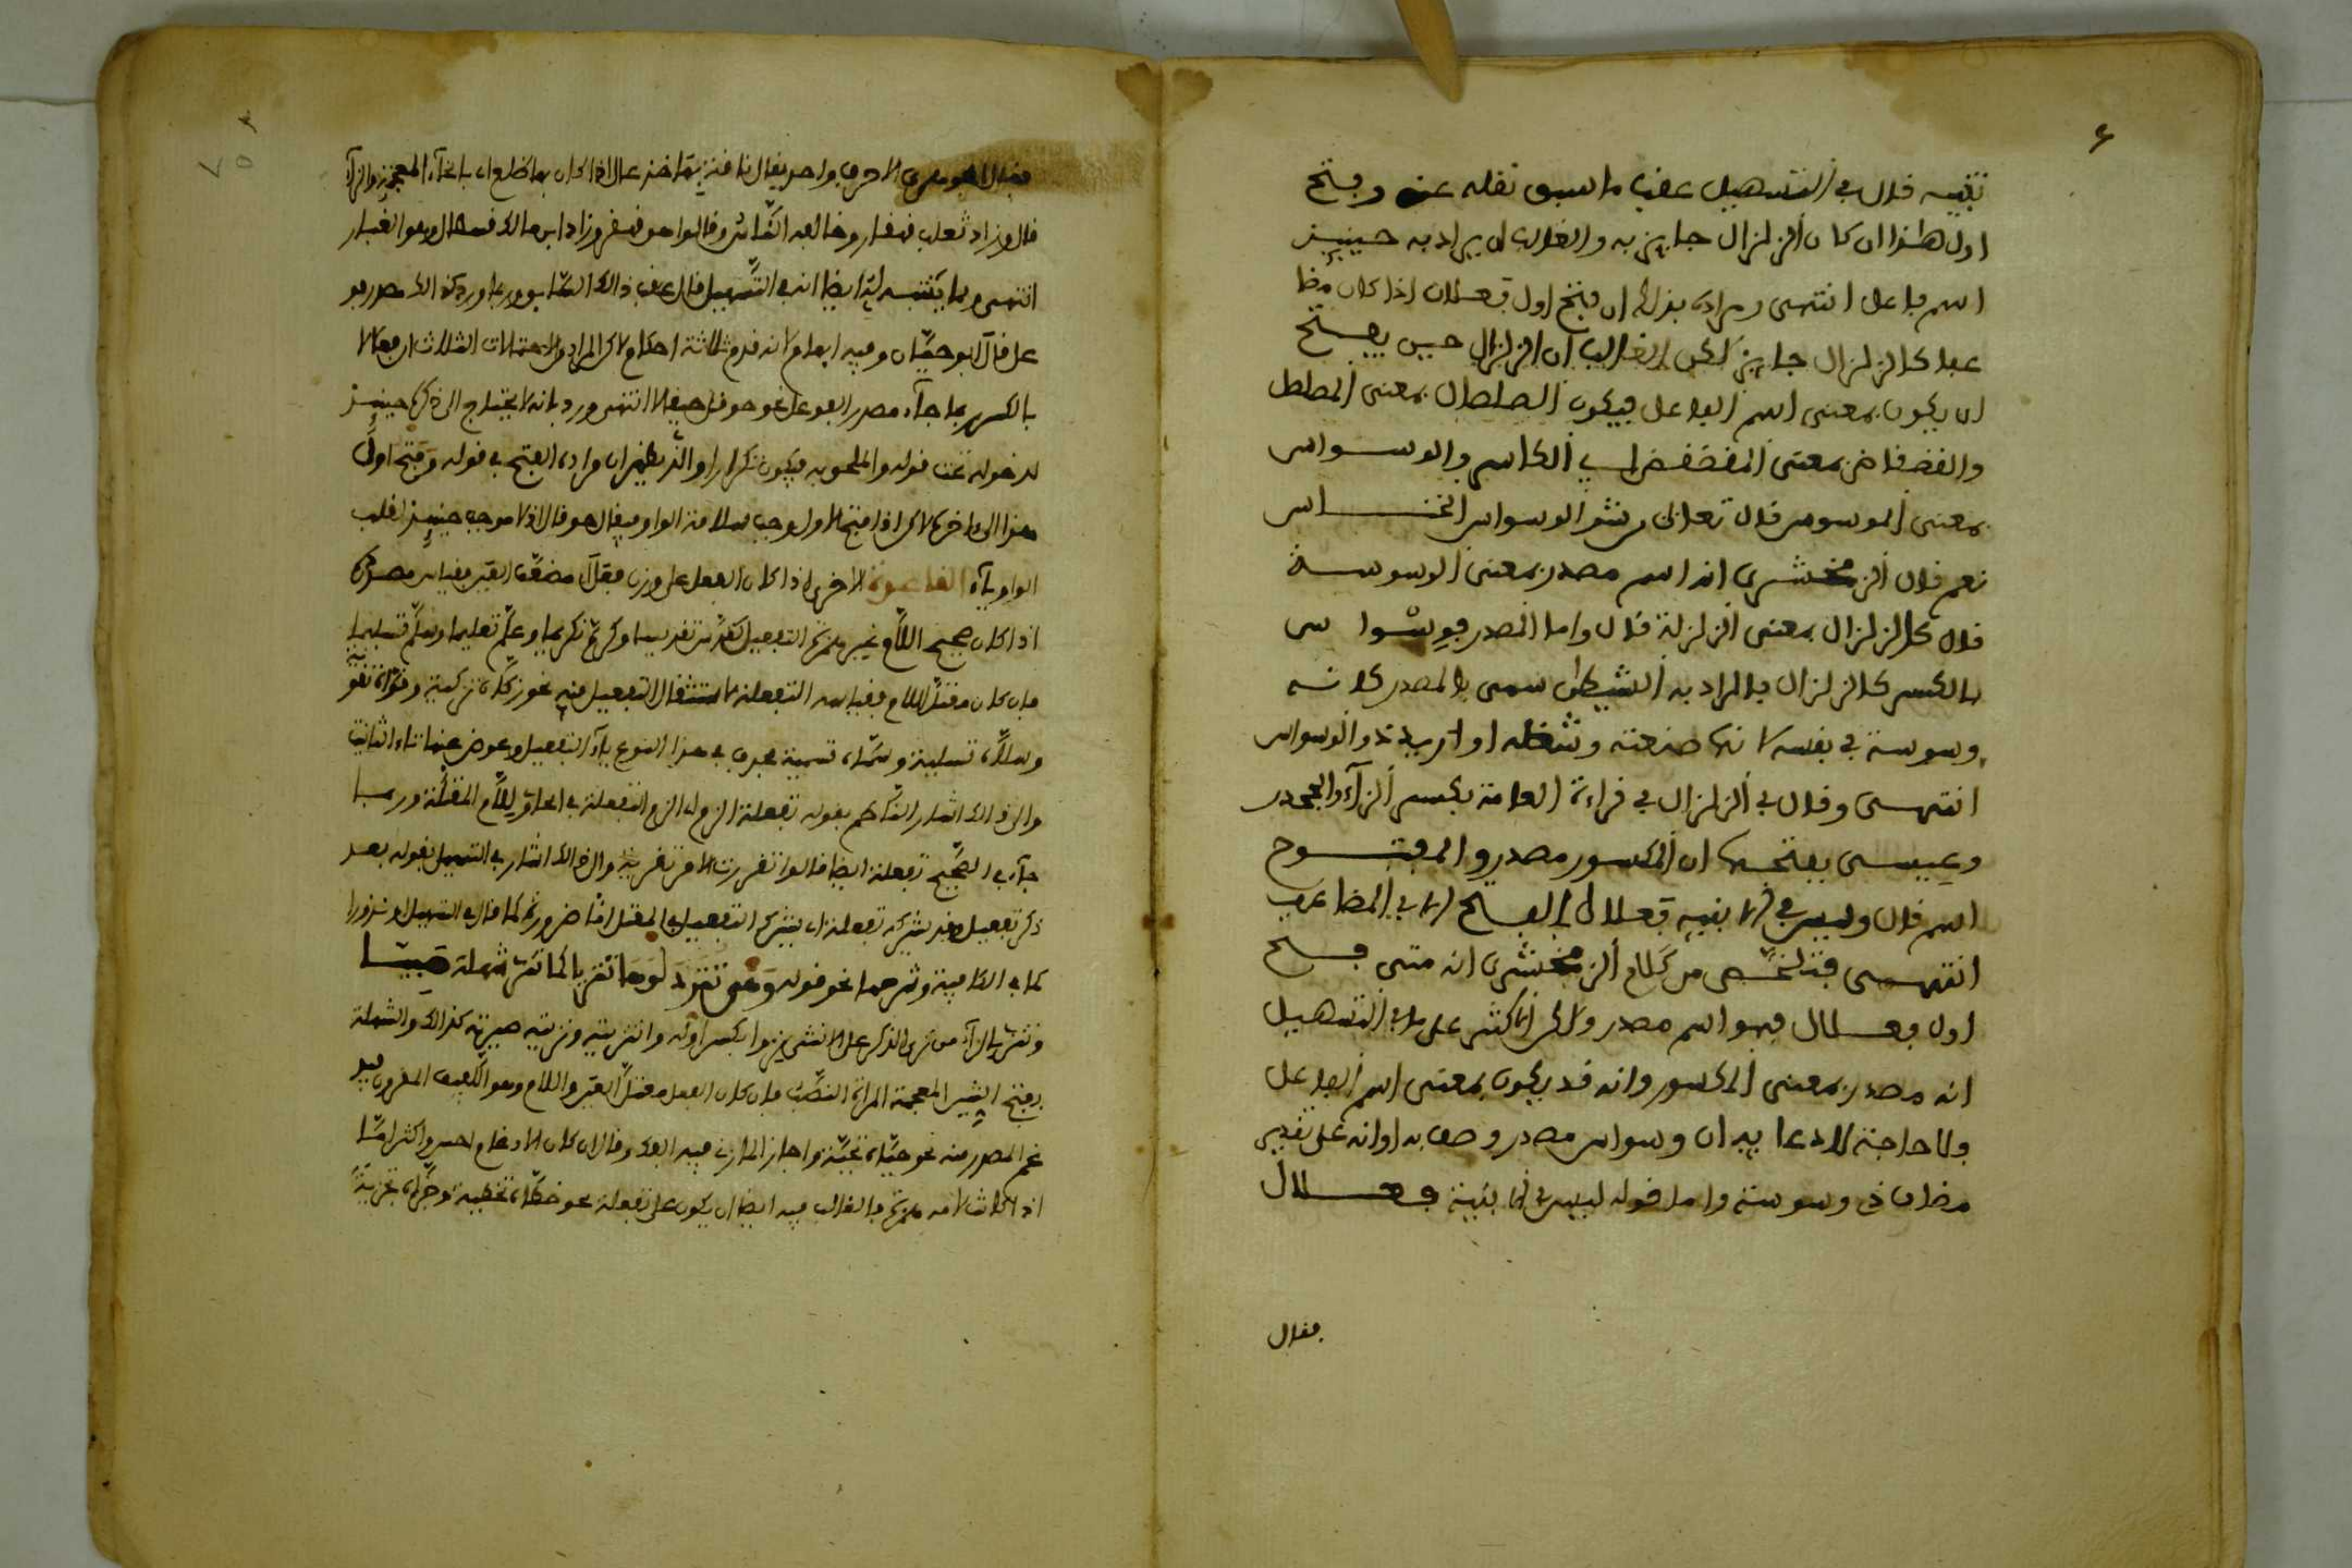 تنبيه قال في التسهيل عقب ما سبق نقله عنه وفتح
اول هذا ان كان كالزلزال جايز به والغالب ان يراد به حينيذ
اسم فاعل انتهى ومراده بذلك ان فتح اول فعلال اذا كان مضا
عفا كالزلزال جايز لكن الغالب ان الزلزال حين يفتح
ان يكون بمعنى اسم الفاعل فيكون الصلصال بمعنى المصلصل
والقضقاض بمعنى المقضقض اي الكاسر والوسواس
بمعنى الموسوس قال تعالى من شر الوسواس الخناس
نعم قال الزمخشري انه اسم مصدر بمعنى الوسوسة
قال كالزلزال بمعنى الزلزلة قال واما المصدر فوسواس
بالكسر كالزلزال والمراد به الشيطان سمي بالمصدر كانه
وسوسة في نفسه لانها صنعته وشغله او اريد ذو الوسواس
انتهى وقال في الزلزال في قراءة العامة بكسر الزاء والجحدر
وعيسى بفتحها ان المكسور مصدر والمفتوح
اسم قال وليس في الابنية فعلال بالفتح الا في المضاعف
انتهى فتلخص من كلام الزمخشري انه متى فتح
اول فعلال فهو اسم مصدر ولكن الاكثر على ما في التسهيل
انه مصدر بمعنى المكسور وانه قد يكون بمعنى اسم الفاعل
ولا حاجة لادعا يه ان وسواس مصدر وصف به او انه على تقدير
مضاف ذي وسوسة واما قوله ليس في الابنية فعلال
فقال
فقال الجوهري الا حرف واحد يقال ناقة بها خزعال اذا كان بها ظلع اي بالخاء المعجمة والزاء
قال وزاد ثعلب قهقار وخالفه الناس وقالوا هو قهقر وزاد ابن مالك قسطال وهو الغبار
انتهى ومما يتنبه له ايضا انه في التسهيل قال عقب ذلك السابق وربما ورد كذلك مصدر فو
عل قال ابو حيان وفيه ابهام لانه قدم ثلاثة احكام لكن المراد الاحتمالات الثلاث ان فعلالا
بالكسر ربما جاء مصدر الفوعل نحو حوقل حيقالا انتهى ورد بانه لا يحتاج الى ذكره حينيذ
لدخوله تحت قوله والملحق به فيكون تكرارا والذي يظهر ان مراده الفتح في قوله وفتح اول
هذا الى اخره لكن اذا فتح الاول وجب سلامة الواو فيقال حوقال اذ لا موجب حينيذ لقلب
الواو ياء القاعدة الاخرى اذا كان الفعل على وزن فعل مضعف العين فقياس مصدره
اذا كان صحيح اللام غير مهموز التفعيل كقدس تقديسا وكرم تكريما وعلم تعليما وسلم تسليما
فان كان معتل اللام فقياسه التفعلة لاستثقال التفعيل فيه نحو زكاه تزكية وقواه تقوية
وسلاه تسلية وسماه تسمية فحذف في هذا النوع ياء التفعيل وعوض عنها تاء التانيث
والى ذلك اشار الناظم بقوله تفعلة الزم اي الزم التفعلة في الحاق اللام المعتلة وربما
جاء في الصحيح تفعلة ايضا قالوا
ذكر تفعيل وقد يشركه تفعلة اي يشرك التفعيل في المعتل اما ضرورة كما قال في التسهيل او نذورا
كما في الكافية وشرحها نحو قوله وهي تنزي دلوها تنزيا كما تنزي شهلة صبيا
وتنزي بالزاء من نزى الذكر على الانثى نزوا بكسر اوله وانزيته ونزيته صيرته كذلك والشهلة
بفتح الشين المعجمة المراة النصف فان كان الفعل معتل العين واللام وهو اللفيف المقرون فيد
غم المصدر منه نحو حياه تحية واجاز المازني فيه الفك وقال ان كان الادغام احسن واكثر اما
اذا كانت لامه همزة فالغالب فيه ايضا ان يكون على تفعلة نحو خطاه تخطية وجزاه تجزية